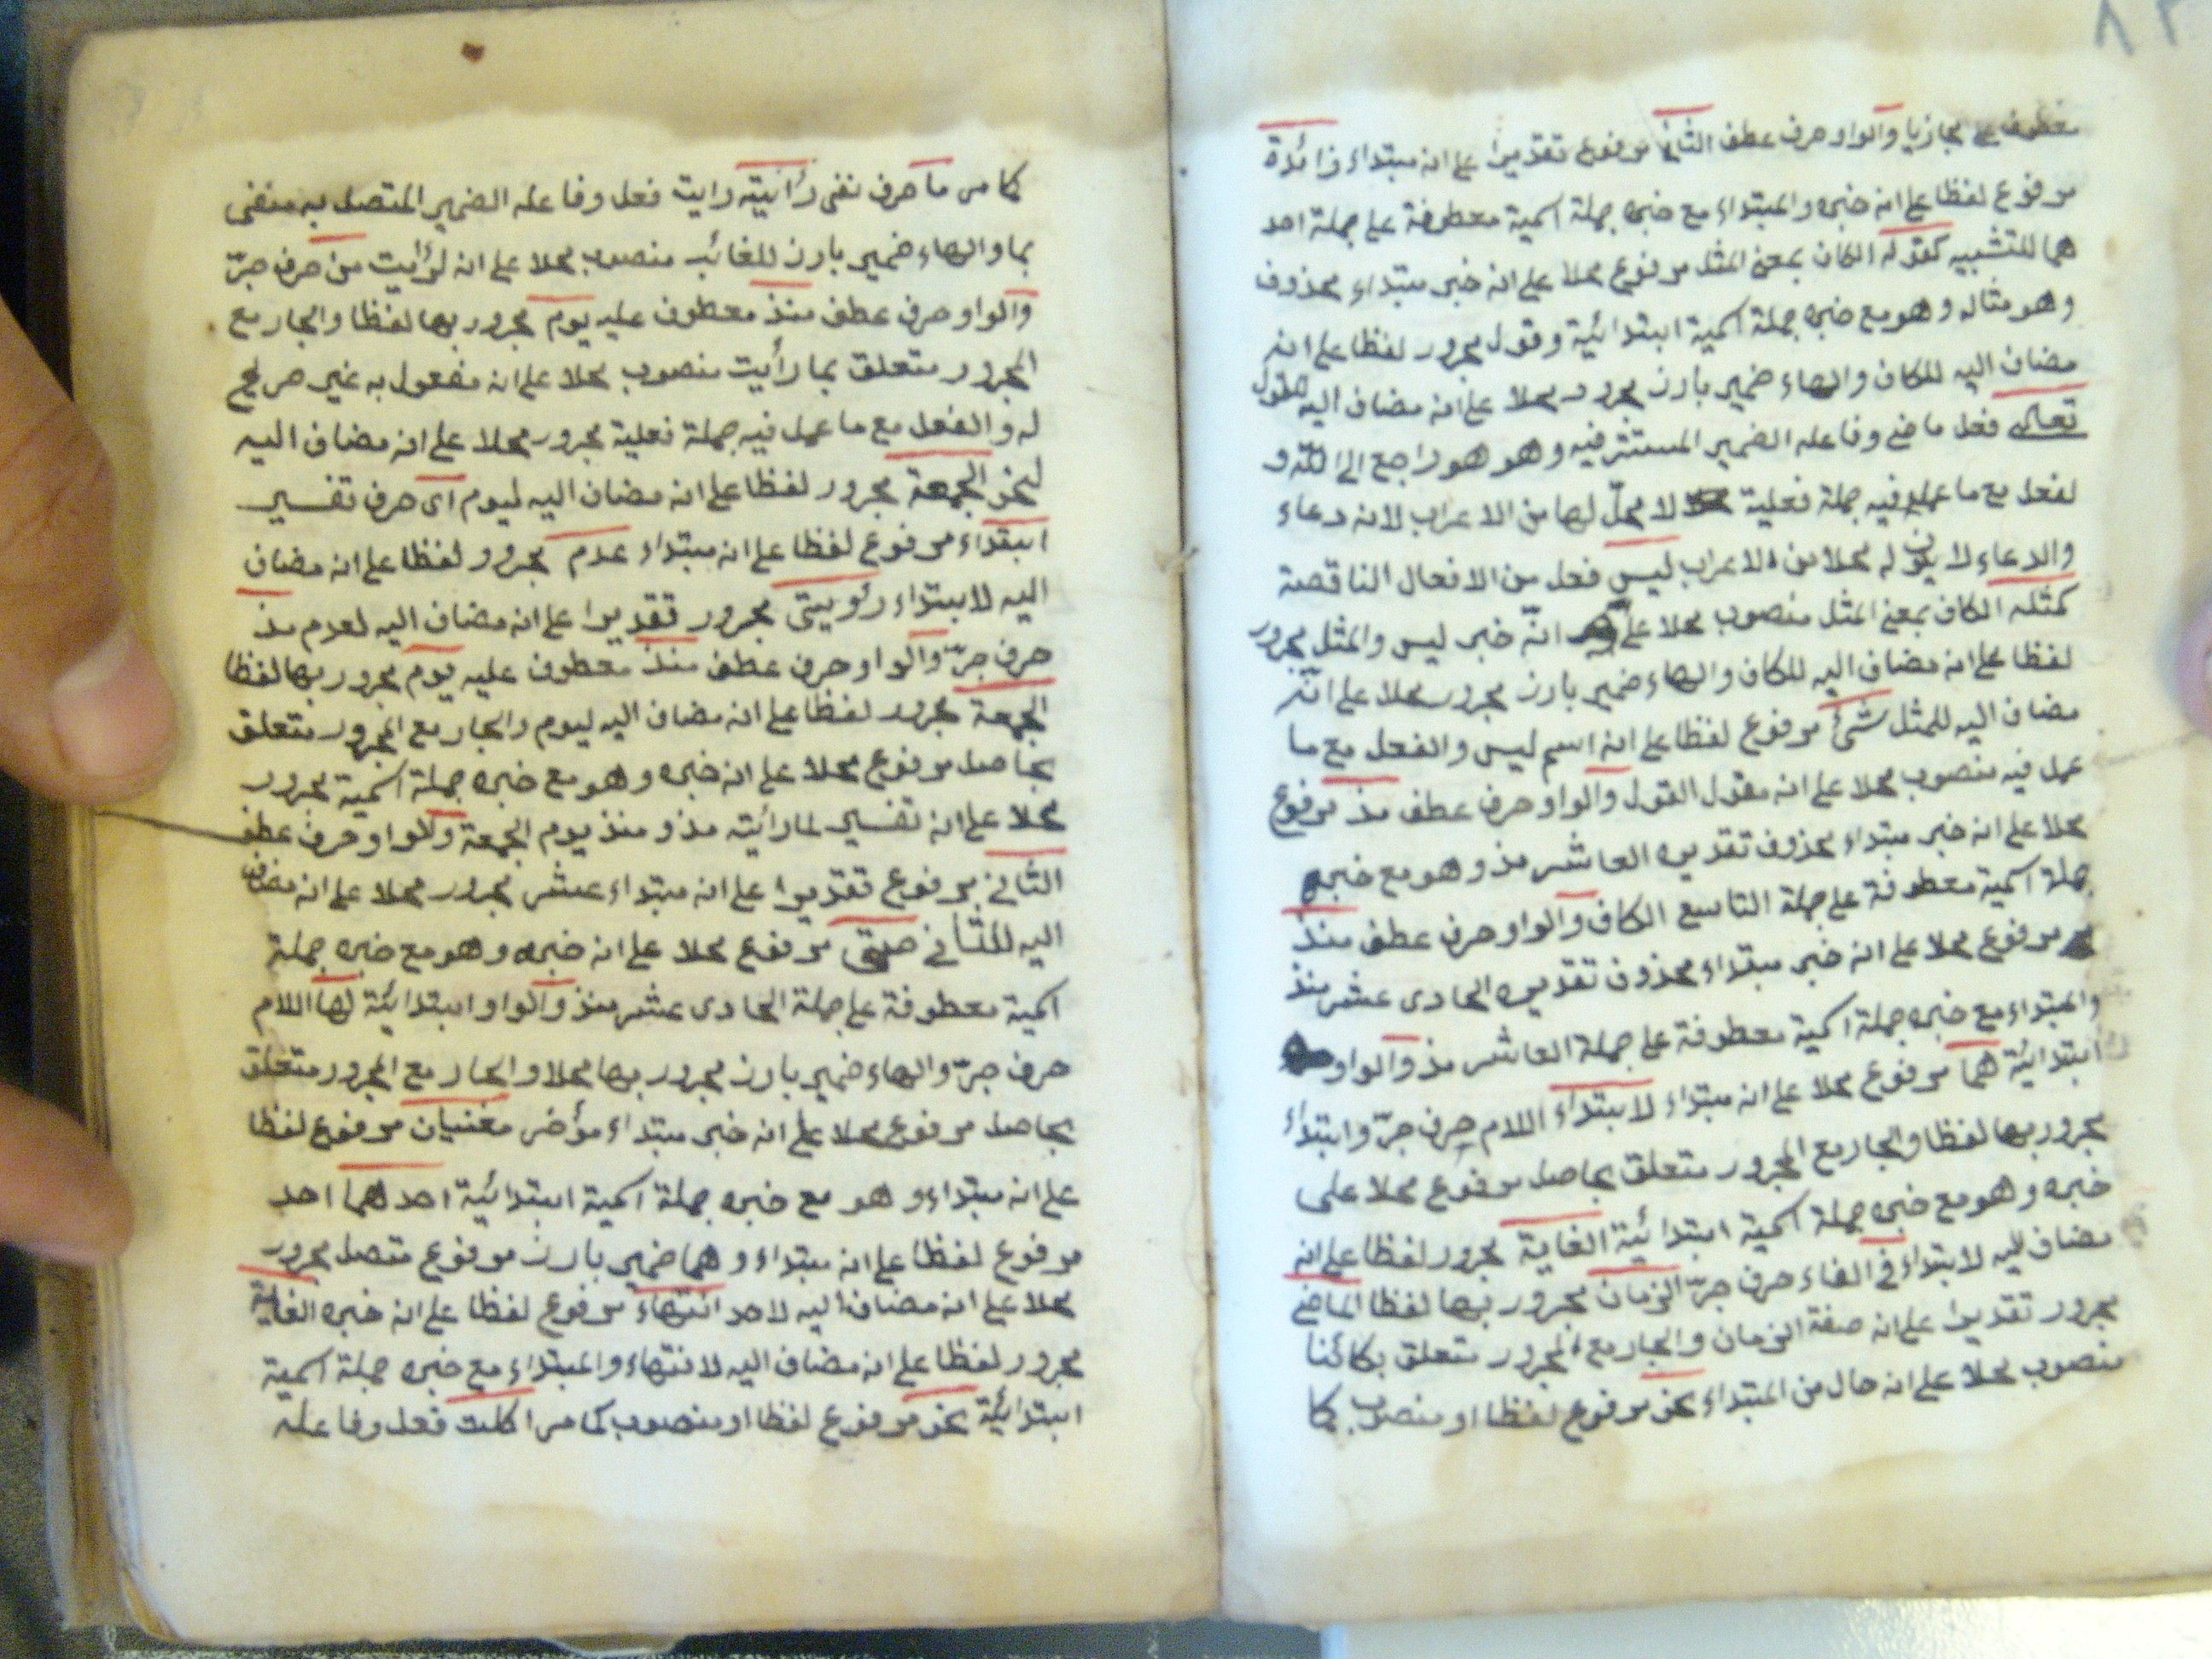 ٨٢
معطوف على مجازيا والواو حرف عطف الثانى مرفوع تقديرا على انه مبتداء زائدة
مرفوع لفظا على انه خبره والمبتداء مع خبره جملة اسمية معطوفة على جملة احد
هما للتشبيه كقوله الكاف بمعنى المثل مرفوع محلا على انه خبر مبتداء محذوف
وهو مثاله وهو مع خبره جملة اسمية ابتدائية وقول مجرور لفظا على انه
مضاف اليه للكاف والهاء ضمير بارز مجرور محلا على انه مضاف اليه للقول
تعالى فعل ماضى وفاعله الضمير المستتر فيه وهو هو راجع الى الله و
لفعل مع ما عمل فيه جملة فعلية لا محلّ لها من الاعراب لانه دعاء
والدعاء لا يكون له محلا من الاعراب ليس فعل من الافعال الناقصة
كمثله الكاف بمعنى المثل منصوب محلا على انّه خبر ليس والمثل مجرور
لفظا على انه مضاف اليه للكاف والهاء ضمير بارز مجرور محلا على انّه
مضاف اليه للمثل شئ مرفوع لفظا على انه اسم ليس والفعل مع ما
عمل فيه منصوب محلا على انه مقول القول والواو حرف عطف مذ مرفوع
محلا على انه خبر مبتداء محذوف تقديره العاشر مذ وهو مع خبره
جملة اسمية معطوفة على جملة التاسع الكاف والواو حرف عطف منذ
مرفوع محلا على انه خبر مبتداء محذوف تقديره الحادى عشر منذ
والمبتداء مع خبره جملة اسمية معطوفة على جملة العاشر مذ والواو
ابتدائية هما مرفوع محلا على انه مبتداء لابتداء اللام حرف جرّ وابتداء
مجرور بها لفظا والجار مع المجرور متعلق بحاصل مرفوع محلا على
خبره وهو مع خبره جملة اسمية ابتدائية الغاية مجرور لفظا على انه
مضاف اليه لابتداء فى الفاء حرف جرّ الزمان مجرور بها لفظا الماضى
مجرور تقديرا على انه صفة الزمان والجار مع المجرور متعلق بكائنا
منصوب محلا على انه حال من المبتداء نحو مرفوع لفظا او منصوب كما
كما مر ما حرف نفى رأيته رايت فعل وفاعله الضمير المتصل به منفى
بما والهاء ضمير بارز للغائب منصوب محلا على انه لرأيت من حرف جرّ
والواو حرف عطف منذ معطوف عليه يوم مجرور بها لفظا والجار مع
المجرور متعلق بما رأيت منصوب محلا على انه مفعول به غير صريح
له والفعل مع ما عمل فيه جملة فعلية مجرور محلا على انه مضاف اليه
لنحو الجمعة مجرور لفظا على انه مضاف اليه ليوم اى حرف تفسير
ابتداء مرفوع لفظا على انه مبتداء عدم مجرور لفظا على انه مضاف
اليه لابتداء رؤيتى مجرور تقديرا على انه مضاف اليه لعدم مذ
حرف جرّ والواو حرف عطف منذ معطوف عليه يوم مجرور بها لفظا
الجمعة مجرور لفظا على انه مضاف اليه ليوم والجار مع المجرور متعلق
بحاصل مرفوع محلا على انه خبره وهو مع خبره جملة اسمية مجرور
محلا على انه تفسير لما رأيته مذ ومنذ يوم الجمعة والواو حرف عطف
الثانى مرفوع تقديرا على انه مبتداء عشر مجرور محلا على انه مضاف
اليه للثانى حتى مرفوع محلا على انه خبره وهو مع خبره جملة
اسمية معطوفة على جملة الحادى عشر منذ والواو ابتدائية لها اللام
حرف جرّ والهاء ضمير بارز مجرور بها محلا والجار مع المجرور متعلق
بحاصل مرفوع محلا على انه خبر مبتداء مؤخر معنيان مرفوع لفظا
على انه مبتداء وهو مع خبره جملة اسمية ابتدائية احدهما احد
مرفوع لفظا على انه مبتداء وهما ضمير بارز مرفوع متصل مجرور
محلا على انه مضاف اليه لاحد انتهاء مرفوع لفظا على انه خبره الغاية
مجرور لفظا على انه مضاف اليه لانتهاء والمبتداء مع خبره جملة اسمية
ابتدائية نحو مرفوع لفظا او منصوب كما مر اكلت فعل وفاعله